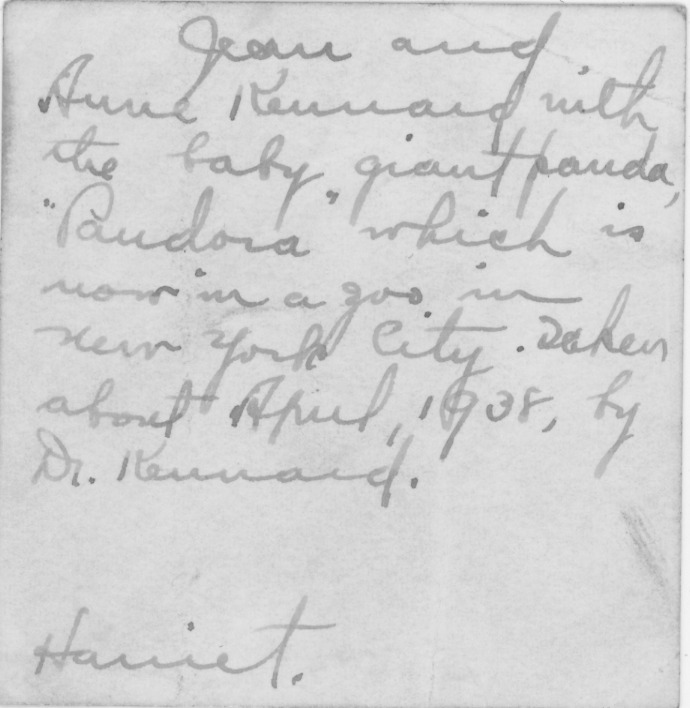 Jean and
Anne Kennard with
the baby giant panda,
"Pandora" which is
now in a zoo in
New York City. Taken
about April, 1938, by
Dr. Kennard.
Harriet.